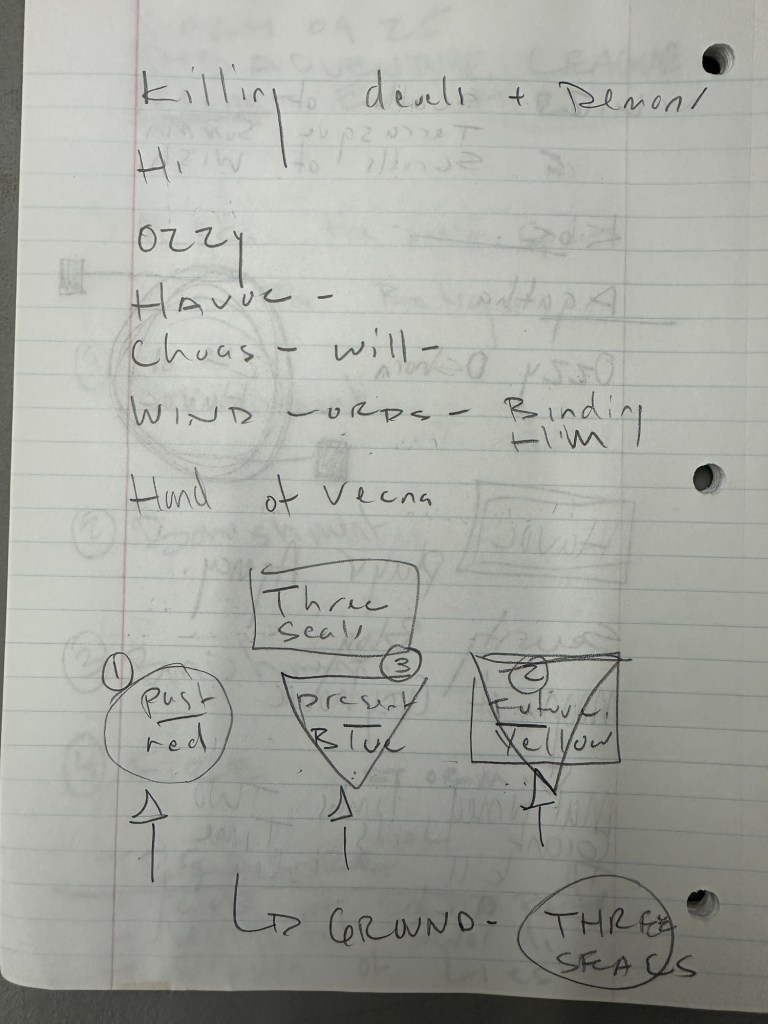 Killing devels + Demons
Hi
Ozzy
HAVOC -
Choas - will -
WIND -ORDS - Binding
Him
Hand of Vecna
Three
seals
1
past
red
3
present
Blue
2
future.
Yellow
GROUND - THREE
SEALS